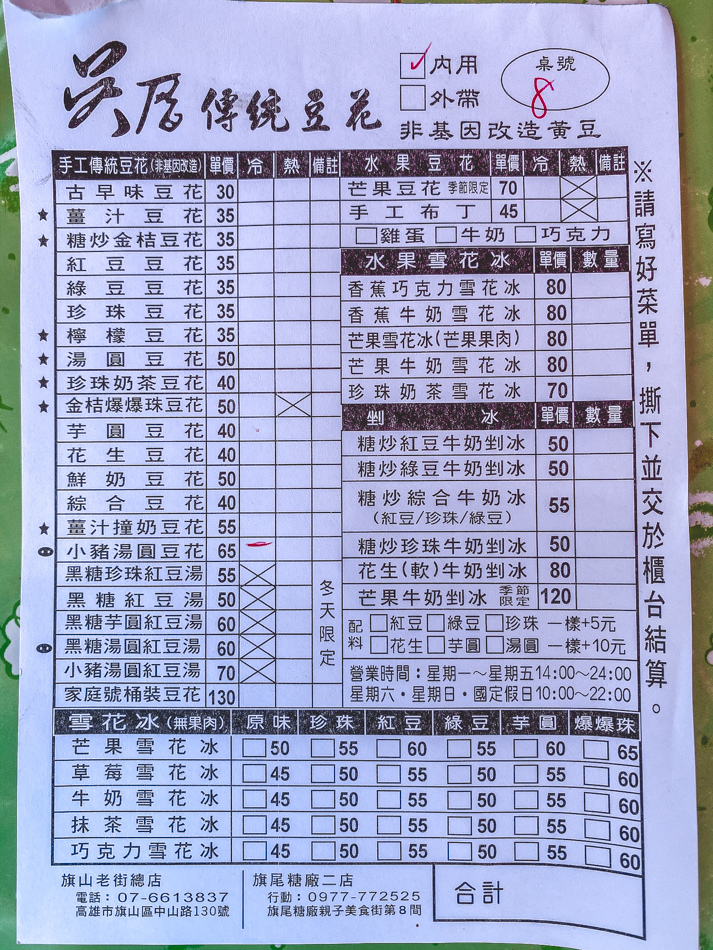 吳居傳統豆花
✓內用
外帶
桌號
8
非基因改造黃豆
手工傳統豆花(非基因改造) 單價 冷 熱 備註
古早味豆花 30
★ 薑汁豆花 35
★ 糖炒金桔豆花 35
紅豆豆花 35
綠豆豆花 35
珍珠豆花 35
★ 檸檬豆花 35
★ 湯圓豆花 50
★ 珍珠奶茶豆花 40
★ 金桔爆爆珠豆花 50
芋圓豆花 40
花生豆花 40
鮮奶豆花 50
綜合豆花 40
★ 薑汁撞奶豆花 55
小豬湯圓豆花 65
黑糖珍珠紅豆湯 55
黑糖紅豆湯 50
黑糖芋圓紅豆湯 60
黑糖湯圓紅豆湯 60
小豬湯圓紅豆湯 70
家庭號桶裝豆花 130
冬天限定
水果豆花 單價 冷 熱 備註
芒果豆花 季節限定 70
手工布丁 45
雞蛋 牛奶 巧克力
水果雪花冰 單價 數量
香蕉巧克力雪花冰 80
香蕉牛奶雪花冰 80
芒果雪花冰(芒果果肉) 80
芒果牛奶雪花冰 80
珍珠奶茶雪花冰 70
剉冰 單價 數量
糖炒紅豆牛奶剉冰 50
糖炒綠豆牛奶剉冰 50
糖炒綜合牛奶冰 55
(紅豆/珍珠/綠豆)
糖炒珍珠牛奶剉冰 50
花生(軟)牛奶剉冰 80
芒果牛奶剉冰 季節限定 120
配料 紅豆 綠豆 珍珠 一樣+5元
花生 芋圓 湯圓 一樣+10元
營業時間：星期一～星期五14:00～24:00
星期六・星期日・國定假日10:00～22:00
※請寫好菜單，撕下並交於櫃台結算。
雪花冰(無果肉) 原味 珍珠 紅豆 綠豆 芋圓 爆爆珠
芒果雪花冰 50 55 60 55 60 65
草莓雪花冰 45 50 55 50 55 60
牛奶雪花冰 45 50 55 50 55 60
抹茶雪花冰 45 50 55 50 55 60
巧克力雪花冰 45 50 55 50 55 60
旗山老街總店
電話：07-6613837
高雄市旗山區中山路130號
旗尾糖廠二店
行動：0977-772525
旗尾糖廠親子美食街第8間
合計